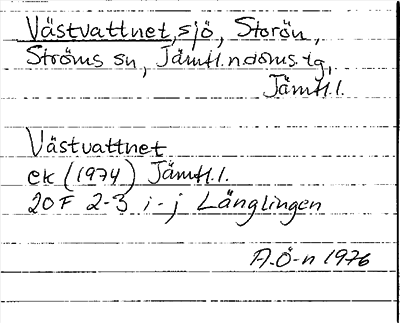 Västvattnet, sjö, Storön,
Ströms sn, Jämtl.n.doms.tg,
Jämtl.l.
Västvattnet
ek (1974) Jämtl.l.
20F 2-3 i-j Länglingen
A.Ö-n 1976